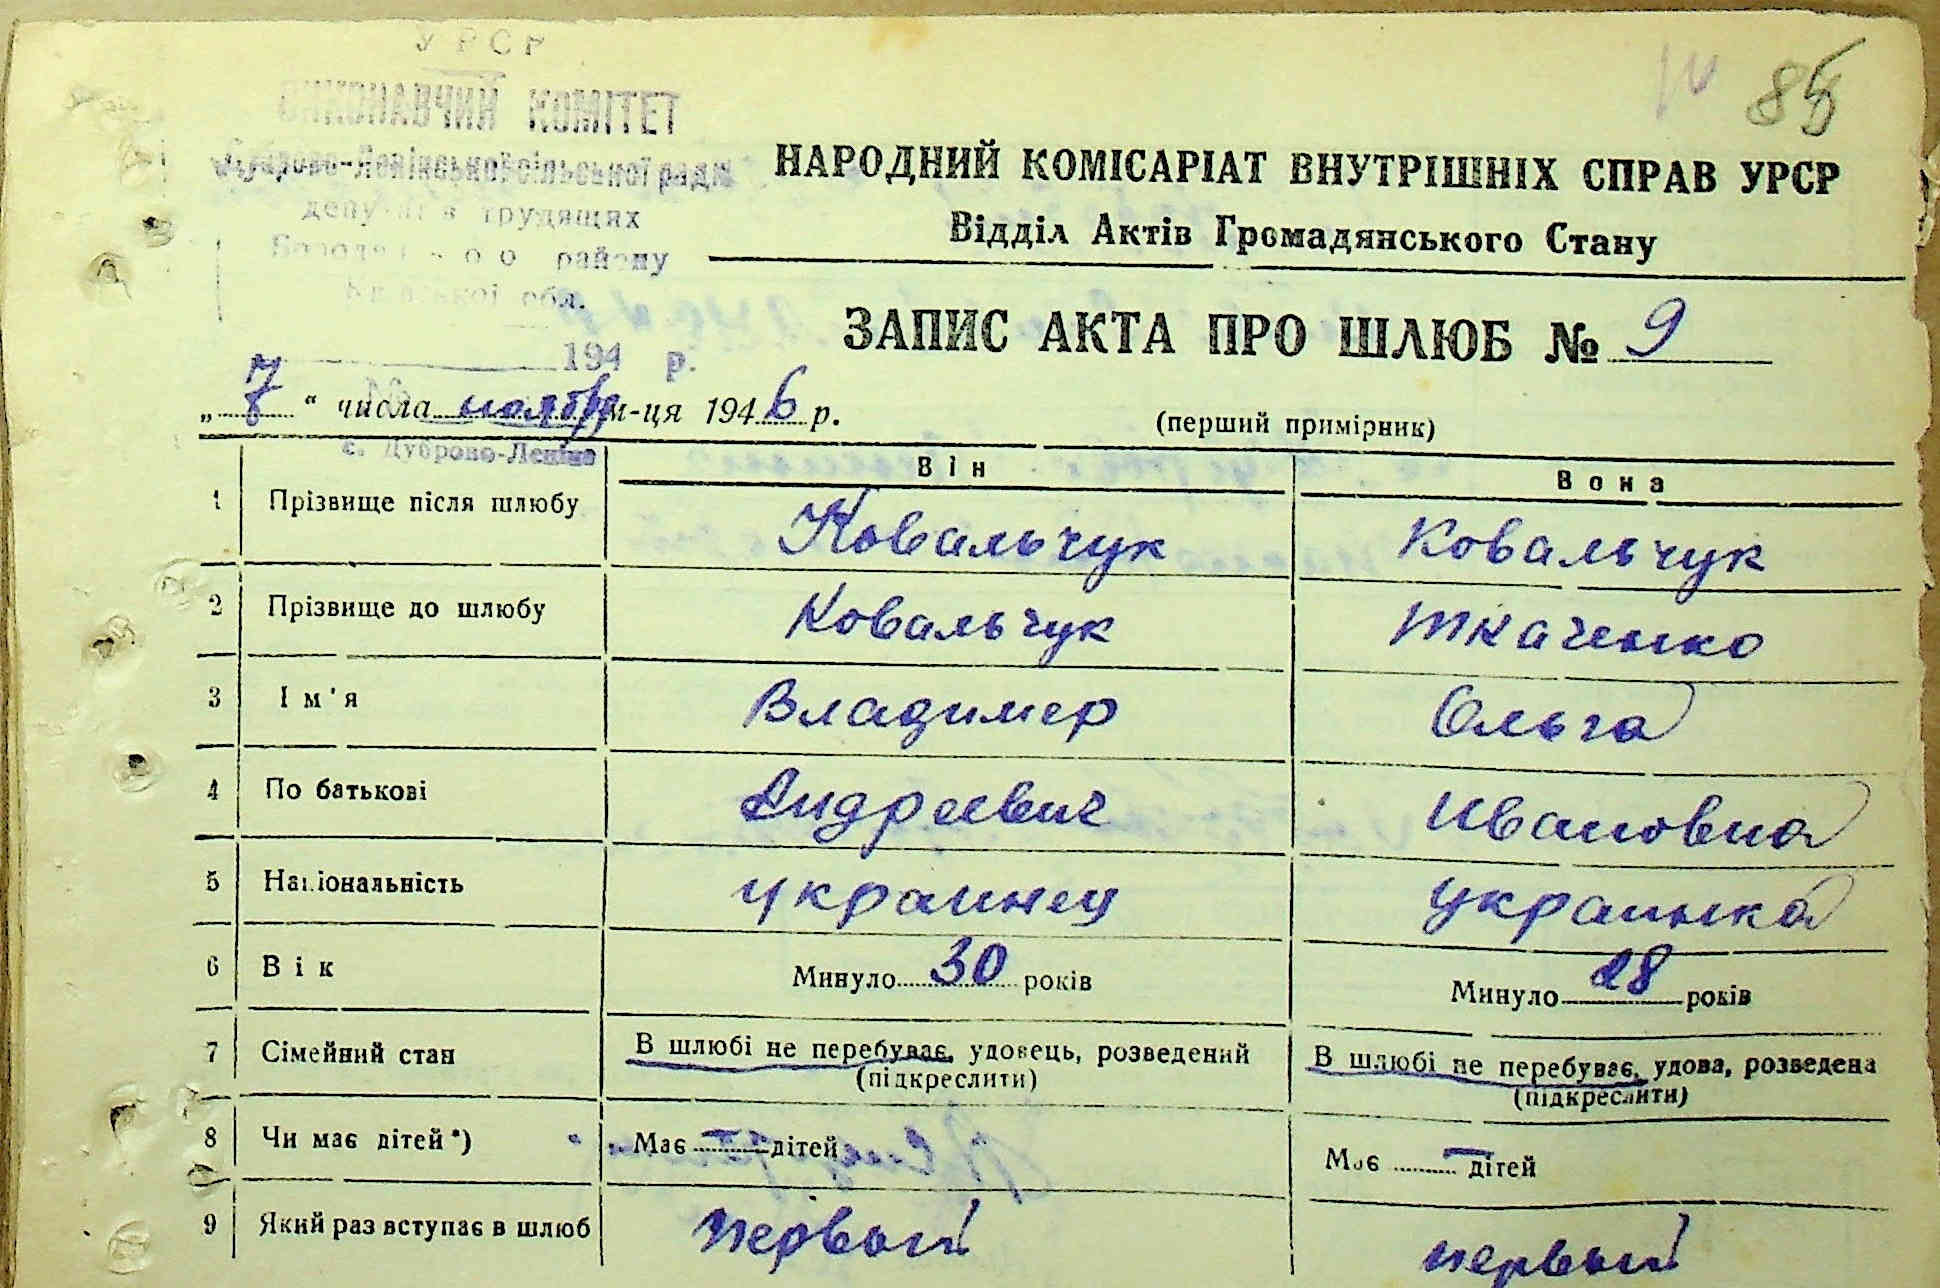 УРСР
ВИКОНАВЧИЙ КОМІТЕТ
Дуброво-Ленінської сільської ради
депутатів трудящих
району
Київської обл.
194 р.
с. Дуброво-Леніно
85
НАРОДНИЙ КОМІСАРІАТ ВНУТРІШНІХ СПРАВ УРСР
Відділ Актів Громадянського Стану
ЗАПИС АКТА ПРО ШЛЮБ № 9
„7“ числа ноября м-ця 1946 р.
(перший примірник)
Він Вона
1 Прізвище після шлюбу Ковальчук Ковальчук
2 Прізвище до шлюбу Ковальчук Ткаченко
3 Ім'я Владимер Ольга
4 По батькові Андреевич Ивановна
5 Національність украинец украинка
6 Вік Минуло 30 років Минуло 28 років
7 Сімейний стан В шлюбі не перебуває, удовець, розведений В шлюбі не перебуває, удова, розведена
(підкреслити) (підкреслити)
8 Чи має дітей*) Має — дітей Має — дітей
9 Який раз вступає в шлюб первый первый